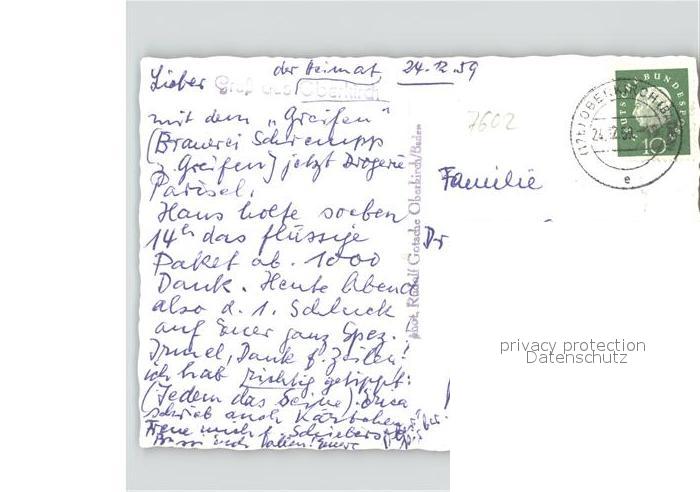 der Heimat, 24.12.59
Lieber Gruß aus Oberkirch
mit dem „Greifen"
(Brauerei Schrempp
z. Greifen) jetzt Drogerie
Parisel.
Hans holte soeben
14h das flüssige
Paket ab. 1000
Dank. Heute Abend
also d. 1. Schluck
auf Euer ganz Spez.
Irmel, Dank f. Zeilen!
ich hab richtig getippt:
(Jedem das Seine).
schrieb auch Kärtchen.
Freue mich
phot. Rudolf Gotsche Oberkirch/Baden
7602
Familie
Dr
DEUTSCHE BUNDESPOST
10
OBERKIRCH
24.12.59
e
privacy protection
Datenschutz